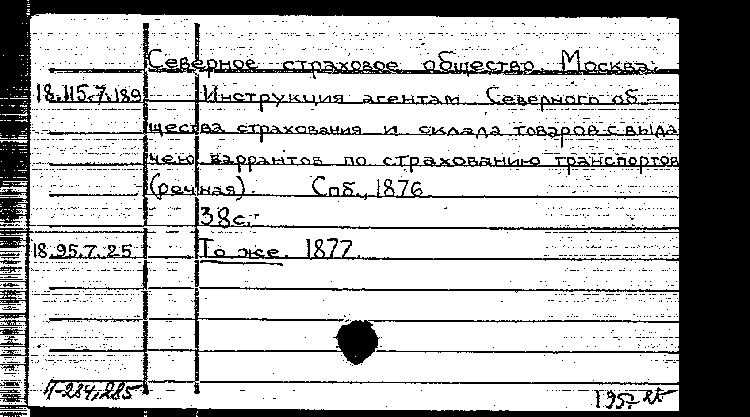 Северное страховое общество. Москва.
18.115.7.189 Инструкция агентам Северного об-
щества страхования и склада товаров с выда
чею варрантов по страхованию транспортов
(речная). Спб., 1876.
38с.-
18.95.7.25 То же. 1877.
П-284,285